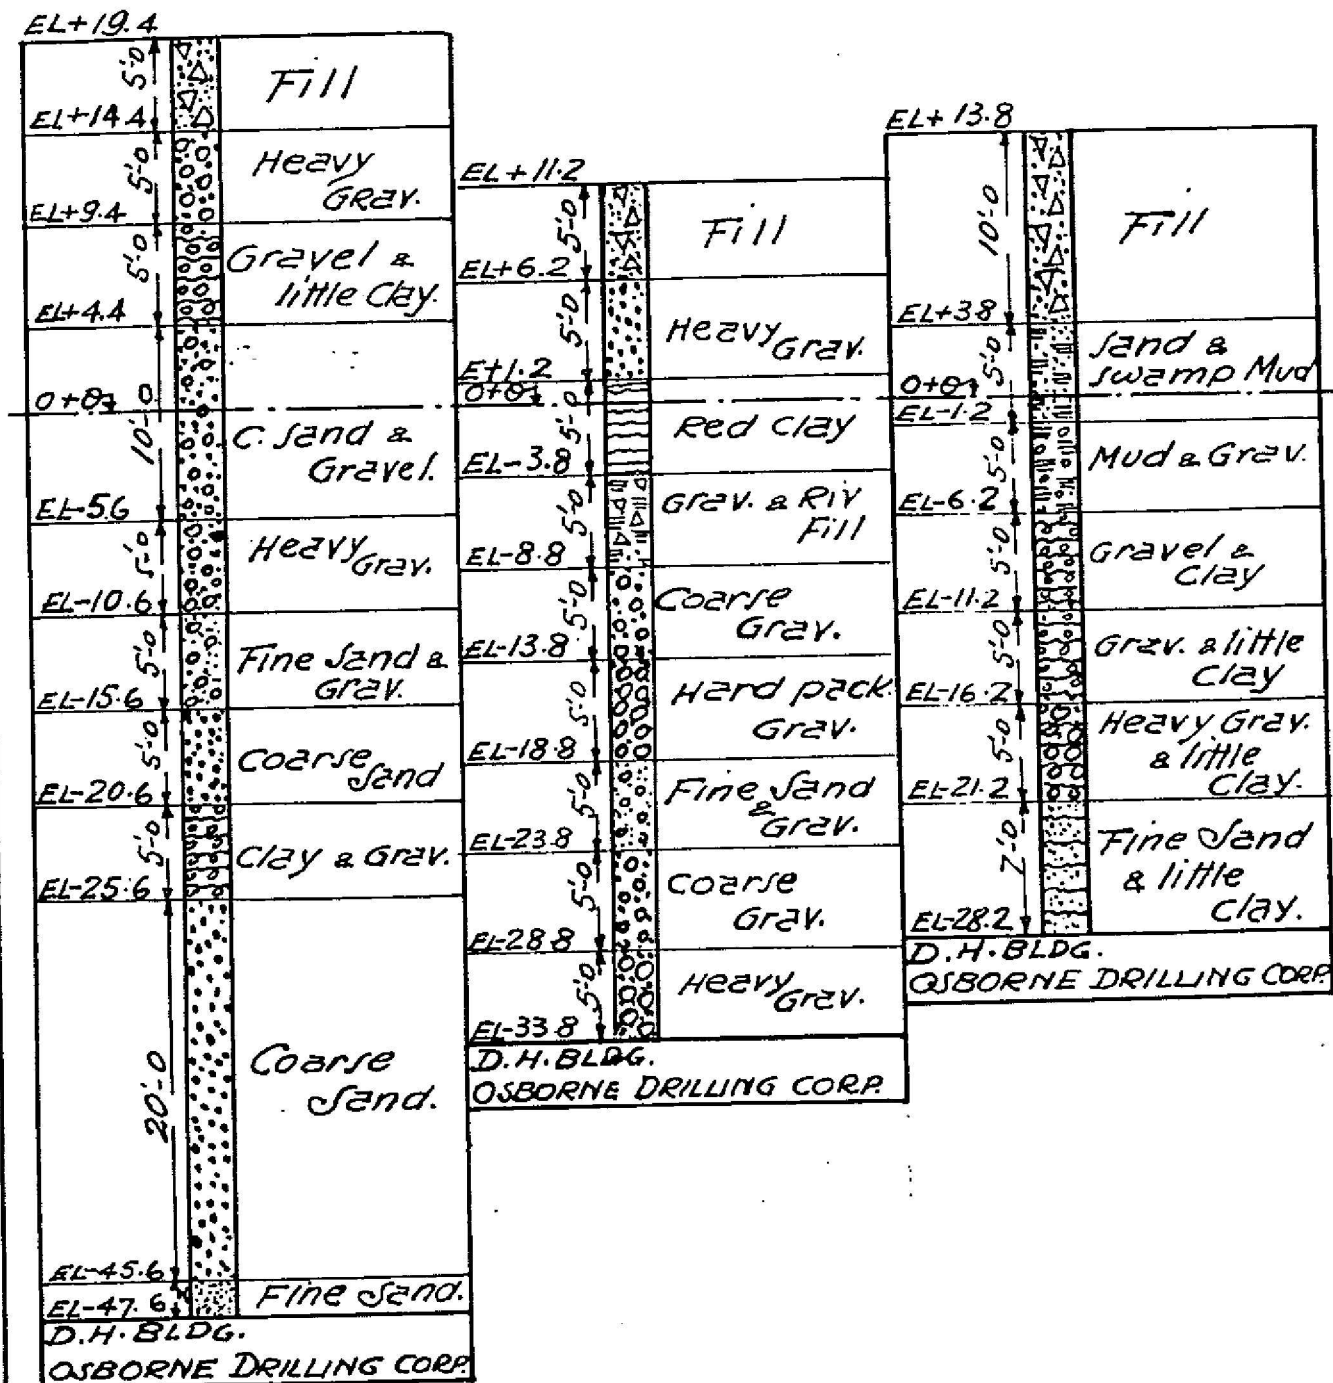 EL+19.4
5'-0
Fill
EL+14.4
5'-0
Heavy
Grav.
EL+9.4
5'-0
Gravel &
little Clay.
EL+4.4
10'-0
0+0
C. Sand &
Gravel.
EL-5.6
5'-0
Heavy
Grav.
EL-10.6
5'-0
Fine Sand &
Grav.
EL-15.6
5'-0
Coarse
Sand
EL-20.6
5'-0
Clay & Grav.
EL-25.6
20'-0
Coarse
Sand.
EL-45.6
Fine Sand.
EL-47.6
D.H. BLDG.
OSBORNE DRILLING CORP.
EL+11.2
5'-0
Fill
EL+6.2
5'-0
Heavy
Grav.
E+1.2
0+0
5'-0
Red Clay
EL-3.8
5'-0
Grav. & Riv
Fill
EL-8.8
5'-0
Coarse
Grav.
EL-13.8
5'-0
Hard pack.
Grav.
EL-18.8
5'-0
Fine Sand
&
Grav.
EL-23.8
5'-0
Coarse
Grav.
EL-28.8
5'-0
Heavy
Grav.
EL-33.8
D.H. BLDG.
OSBORNE DRILLING CORP.
EL+13.8
10'-0
Fill
EL+3.8
5'-0
Sand &
swamp Mud
0+0
EL-1.2
5'-0
Mud & Grav.
EL-6.2
5'-0
Gravel &
Clay
EL-11.2
5'-0
Grav. & little
Clay
EL-16.2
5'-0
Heavy Grav.
& little
Clay.
EL-21.2
7'-0
Fine Sand
& little
Clay.
EL-28.2
D.H. BLDG.
OSBORNE DRILLING CORP.